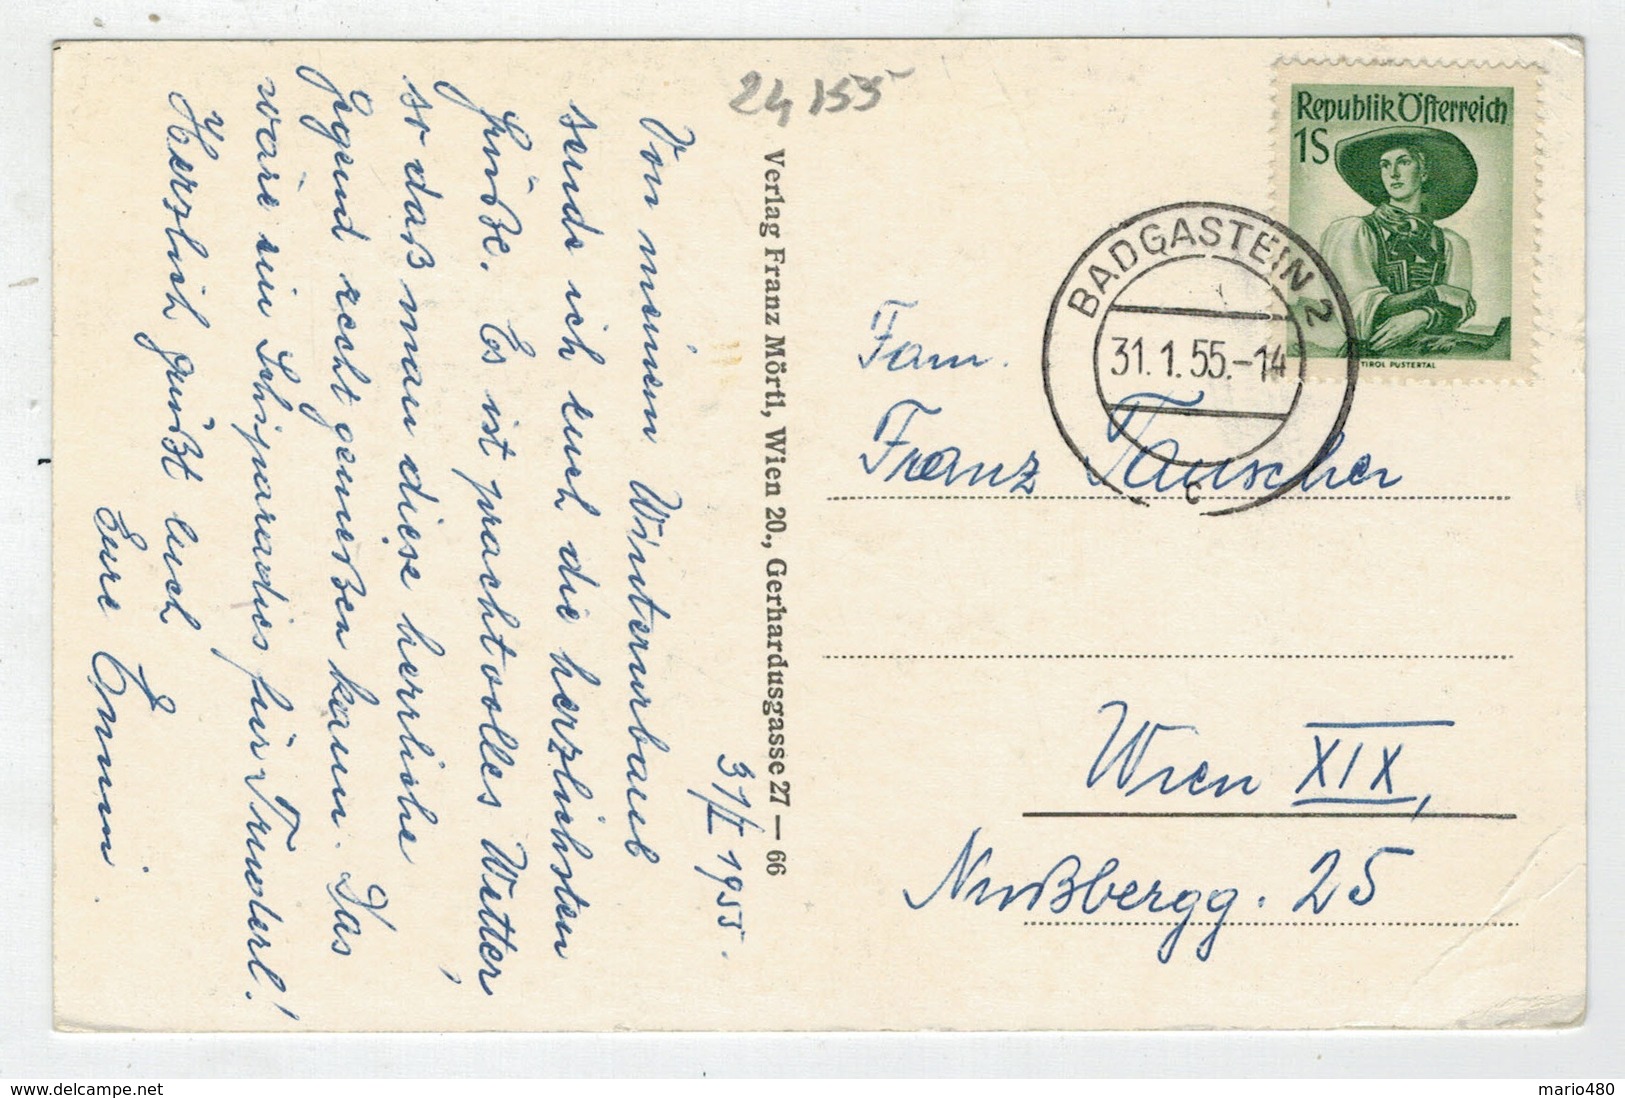 24 155
Republik Österreich
1S
TIROL PUSTERTAL
BADGASTEIN 2
31.1.55.-14
c
31/I 1955.
Von meinem Winterurlaub
sende ich euch die herzlichsten
Grüße. Es ist prachtvolles Wetter,
so daß man diese herrliche
Gegend recht genießen kann. Das
wäre ein Schiparadies für Truderl!
Herzlich grüßt euch
Eure Emmi.
Verlag Franz Mörtl, Wien 20., Gerhardusgasse 27 — 66
Fam.
Franz Tauscher
Wien XIX,
Nußbergg. 25
www.delcampe.net
mario480